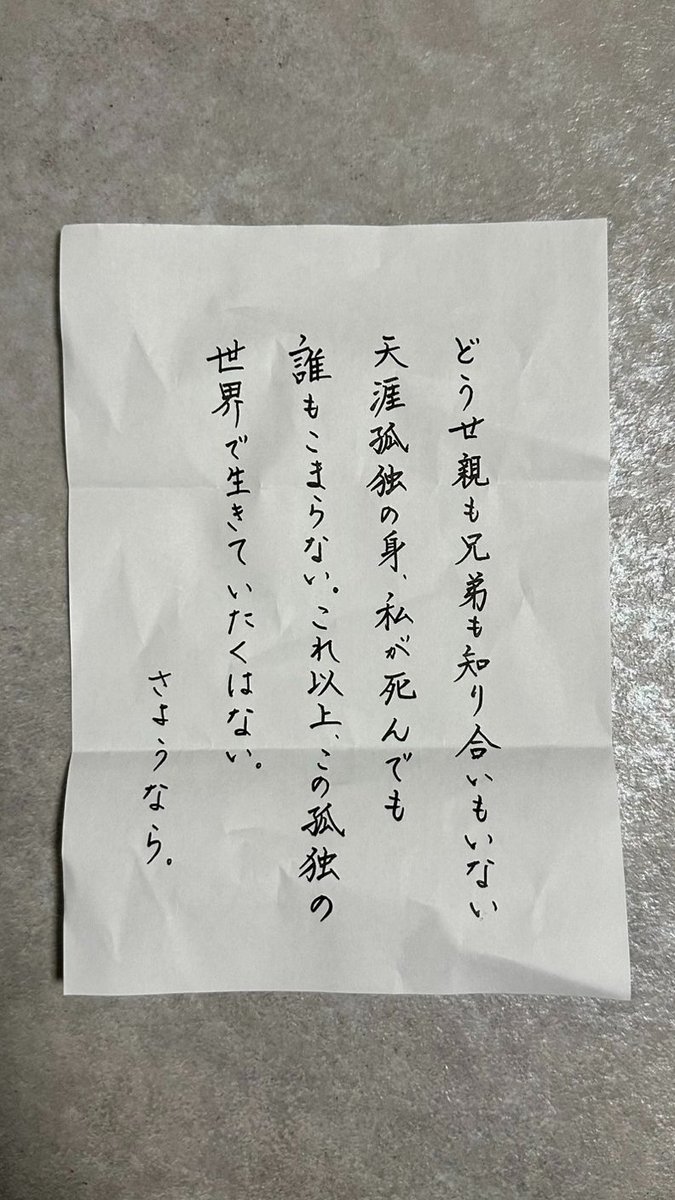 どうせ親も兄弟も知り合いもいない
天涯孤独の身、私が死んでも
誰もこまらない。これ以上、この孤独の
世界で生きていたくはない。
さようなら。